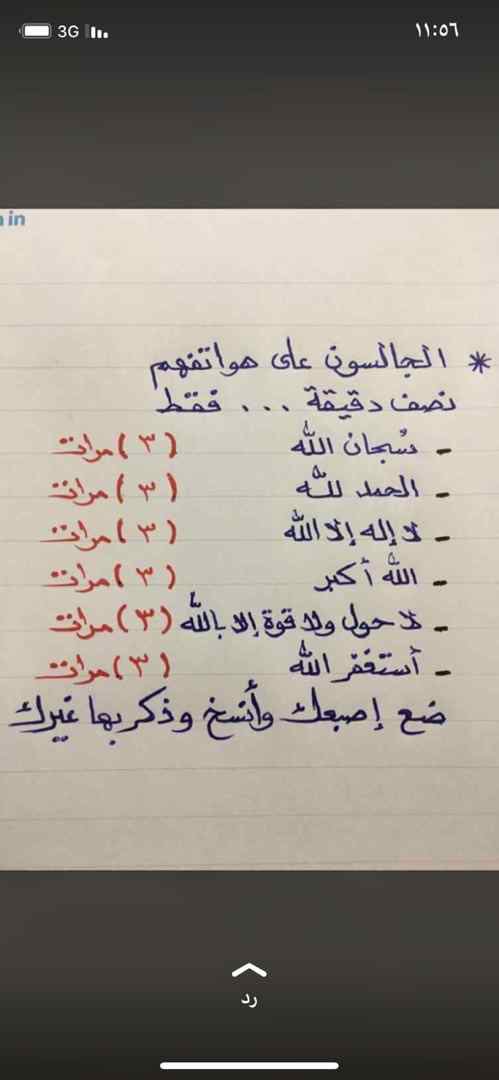 3G
١١:٥٦
in
* الجالسون على هواتفهم
نصف دقيقة ... فقط
- سُبحان الله (٣) مرات
- الحمد لله (٣) مرات
- لا إله إلا الله (٣) مرات
- الله أكبر (٣) مرات
- لا حول ولا قوة إلا بالله (٣) مرات
- أستغفر الله (٣) مرات
ضع إصبعك وأنسخ وذكر بها غيرك
رد